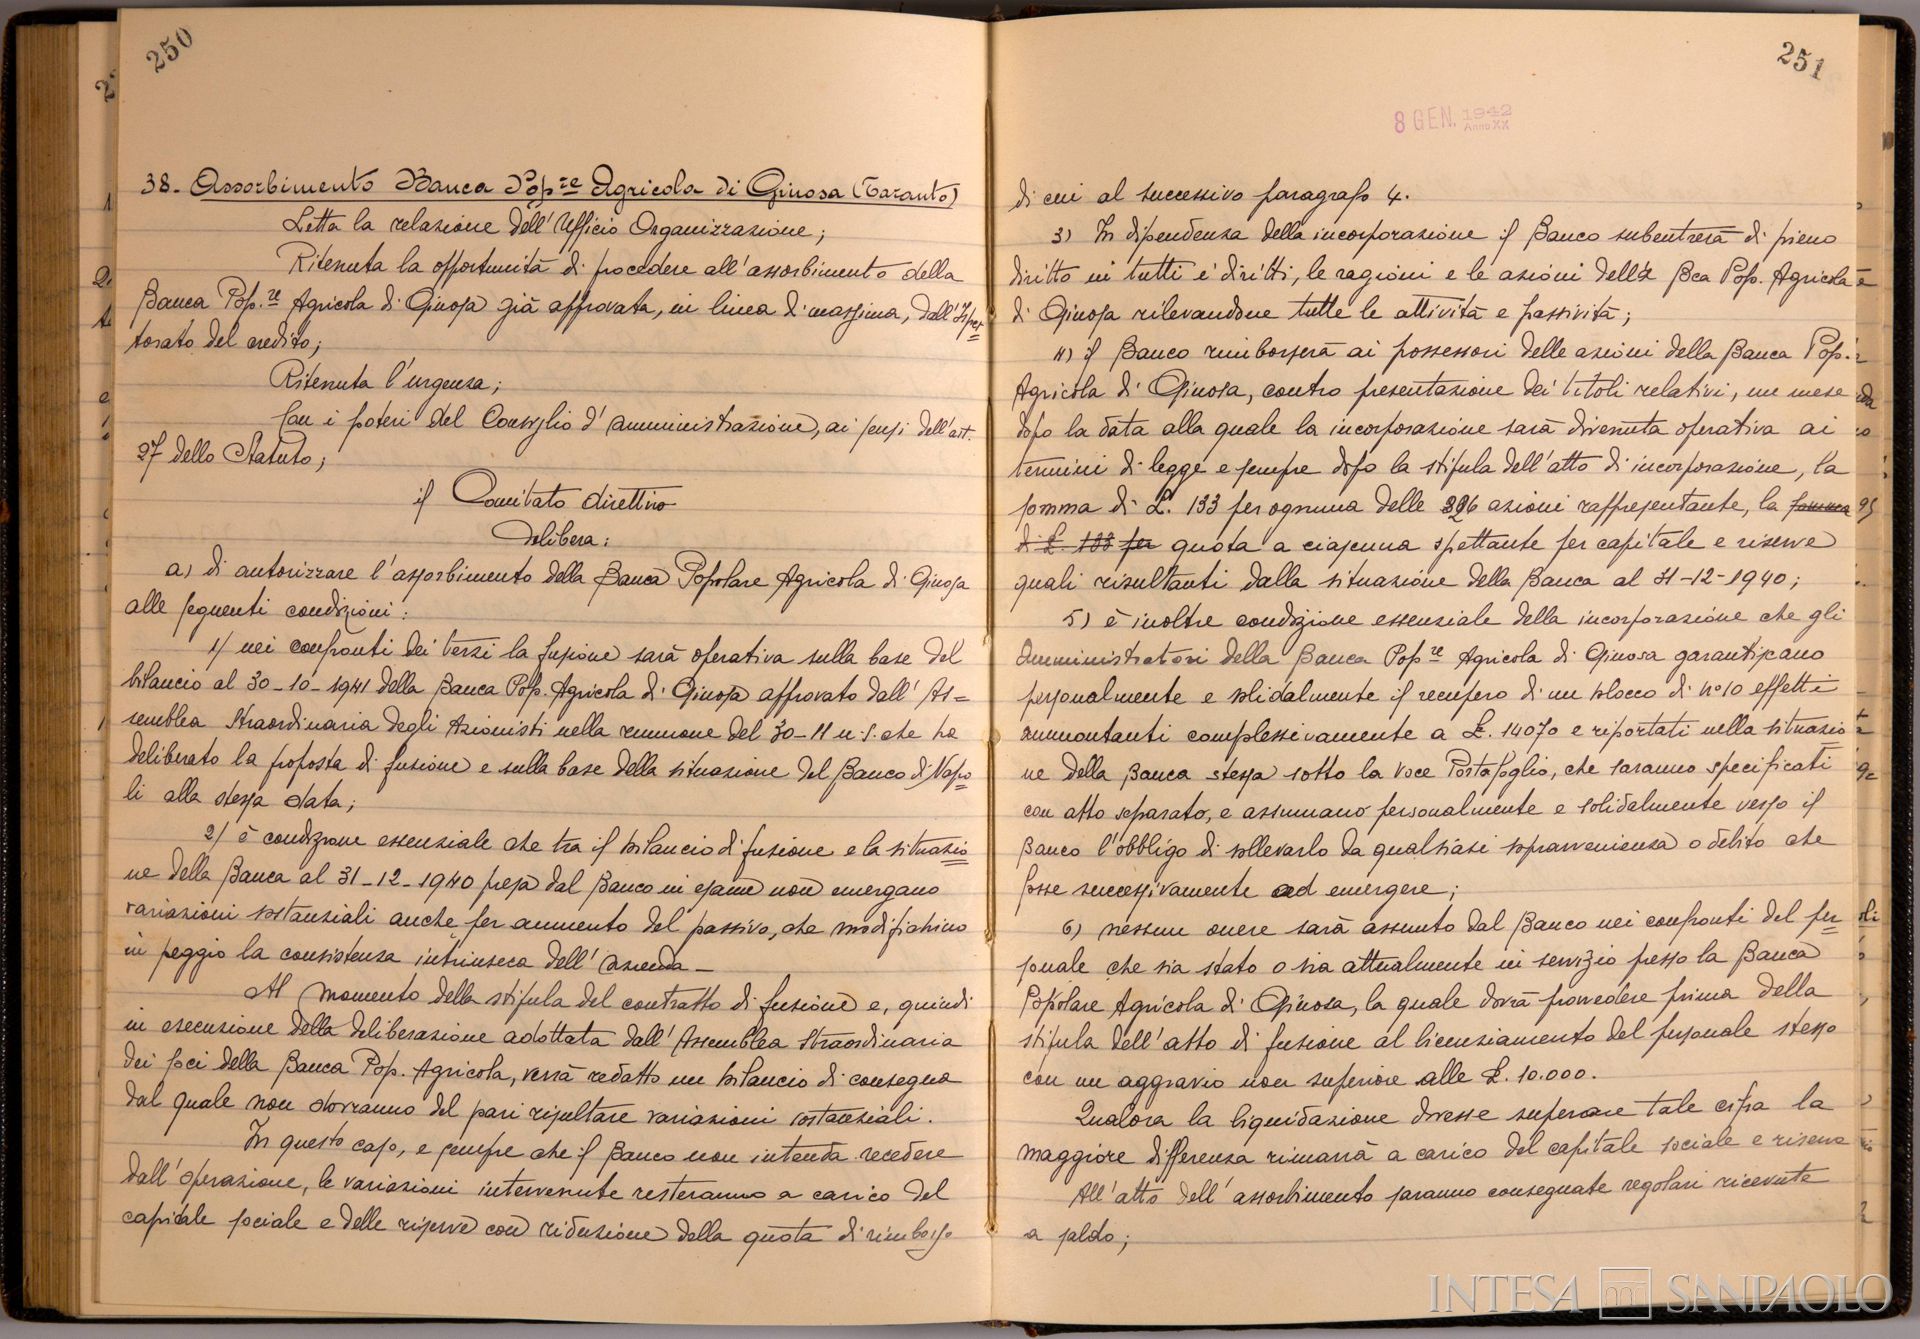 250
38. Assorbimento Banca Pop.re Agricola di Ginosa (Taranto)
Letta la relazione dell'Ufficio Organizzazione;
Ritenuta la opportunità di procedere all'assorbimento della
Banca Pop.re Agricola di Ginosa già approvata, in linea di massima, dall'Ispet=
torato del credito;
Ritenuta l'urgenza;
Con i poteri del Consiglio d'amministrazione, ai sensi dell'art.
27 dello Statuto;
il Comitato direttivo
delibera:
a) di autorizzare l'assorbimento della Banca Popolare Agricola di Ginosa
alle seguenti condizioni:
1) nei confronti dei terzi la fusione sarà operativa sulla base del
bilancio al 30-10-1941 della Banca Pop. Agricola di Ginosa approvato dall'As=
semblea straordinaria degli Azionisti nella riunione del 30-11 u.s. che ha
deliberato la proposta di fusione e sulla base della situazione del Banco di Napo=
li alla stessa data;
2) è condizione essenziale che tra il bilancio di fusione e la situazio=
ne della Banca al 31-12-1940 presa dal Banco in esame non emergano
variazioni sostanziali anche per aumento del passivo, che modifichino
in peggio la consistenza intrinseca dell'azienda-
Al momento della stipula del contratto di fusione e, quindi
in esecuzione della deliberazione adottata dall'Assemblea straordinaria
dei soci della Banca Pop. Agricola, verrà redatto un bilancio di consegna
dal quale non dovranno del pari risultare variazioni sostanziali.
In questo caso, e sempre che il Banco non intenda recedere
dall'operazione, le variazioni intervenute resteranno a carico del
capitale sociale e delle riserve con riduzione della quota di rimborso
251
8 GEN. 1942
Anno XX
di cui al successivo paragrafo 4.
3) In dipendenza della incorporazione il Banco subentrerà di pieno
diritto in tutti i diritti, le ragioni e le azioni della Bca Pop. Agricola
di Ginosa rilevandone tutte le attività e passività;
4) il Banco rimborserà ai possessori delle azioni della Banca Pop.
Agricola di Ginosa, contro presentazione dei titoli relativi, un mese
dopo la data alla quale la incorporazione sarà divenuta operativa ai
termini di legge e sempre dopo la stipula dell'atto di incorporazione, la
somma di L. 133 per ognuna delle azioni rappresentante, la somma
di L. 133 per quota a ciascuna spettante per capitale e riserve
quali risultanti dalla situazione della Banca al 31-12-1940;
5) è inoltre condizione essenziale della incorporazione che gli
Amministratori della Banca Pop.re Agricola di Ginosa garantiscano
personalmente e solidalmente il recupero di un blocco di n°10 effetti
ammontanti complessivamente a L. 14070 e riportati nella situazio=
ne della Banca stessa sotto la voce Portafoglio, che saranno specificati
con atto separato, e assumano personalmente e solidalmente verso il
Banco l'obbligo di sollevarlo da qualsiasi sopravvenienza o debito che
fosse successivamente ad emergere;
6) nessun onere sarà assunto dal Banco nei confronti del per=
sonale che sia stato o sia attualmente in servizio presso la Banca
Popolare Agricola di Ginosa, la quale dovrà provvedere prima della
stipula dell'atto di fusione al licenziamento del personale stesso
con un aggravio non superiore alle L. 10.000.
Qualora la liquidazione dovesse superare tale cifra la
maggiore differenza rimarrà a carico del capitale sociale e riserve
All'atto dell'assorbimento saranno consegnate regolari ricevute
a saldo;
INTESA SANPAOLO